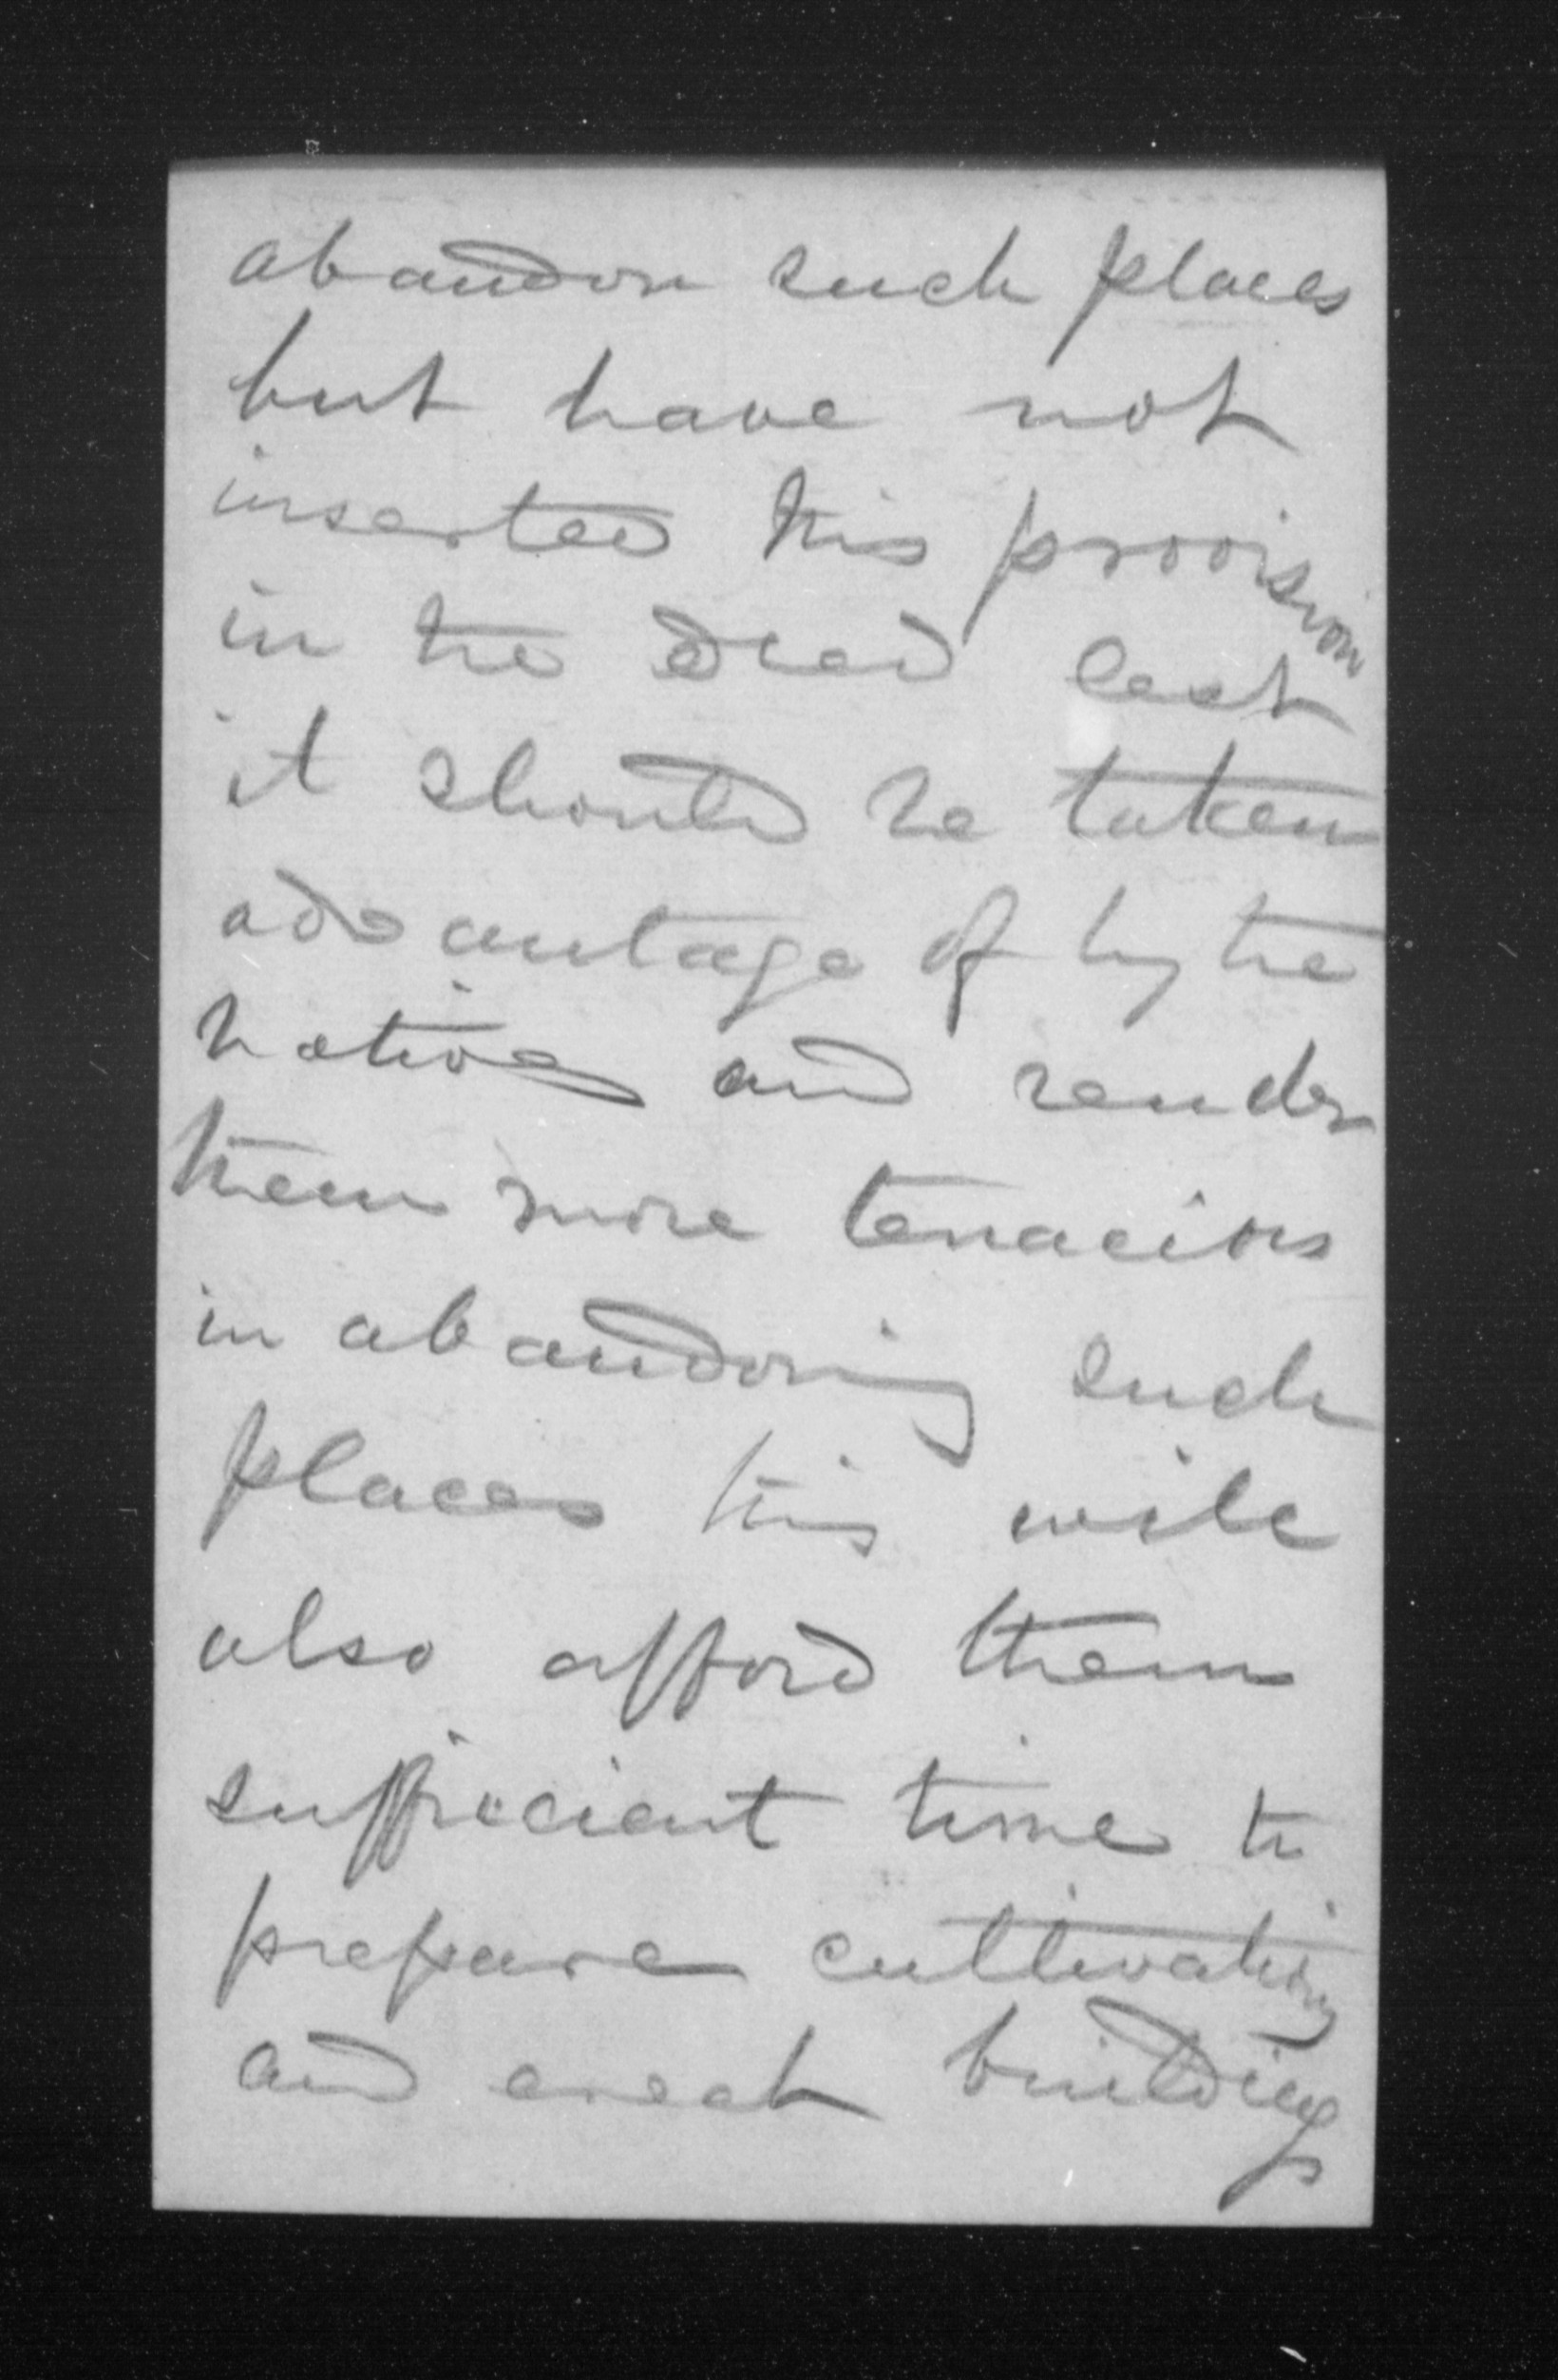 abandon such places
but have not
inserted this provision
in the deed lest
it should be taken
advantage of by the
natives and render
them more tenacious
in abandoning such
places this will
also afford them
sufficient time to
prepare cultivations
and erect buildings